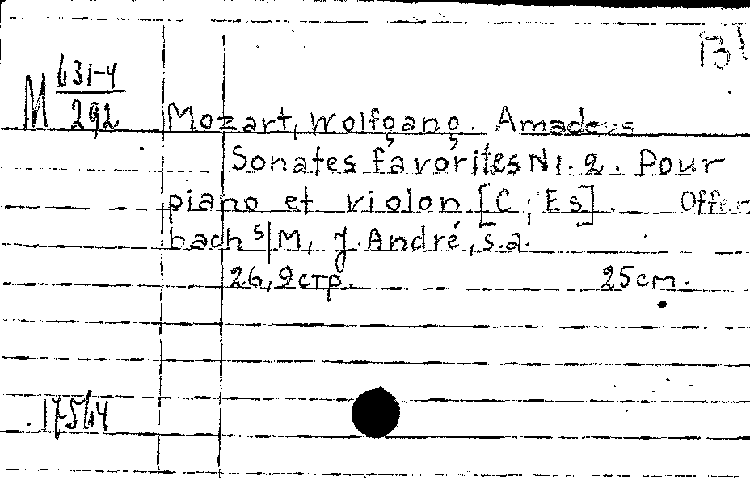 M 631-4
292
Mozart, Wolfgang. Amadeus
Sonates favorites N 1. 2. Pour
piano et violon [C, Es]. Offen
bach s/M, J. André, s.a.
26, 9 стр. 25 cm.
17564